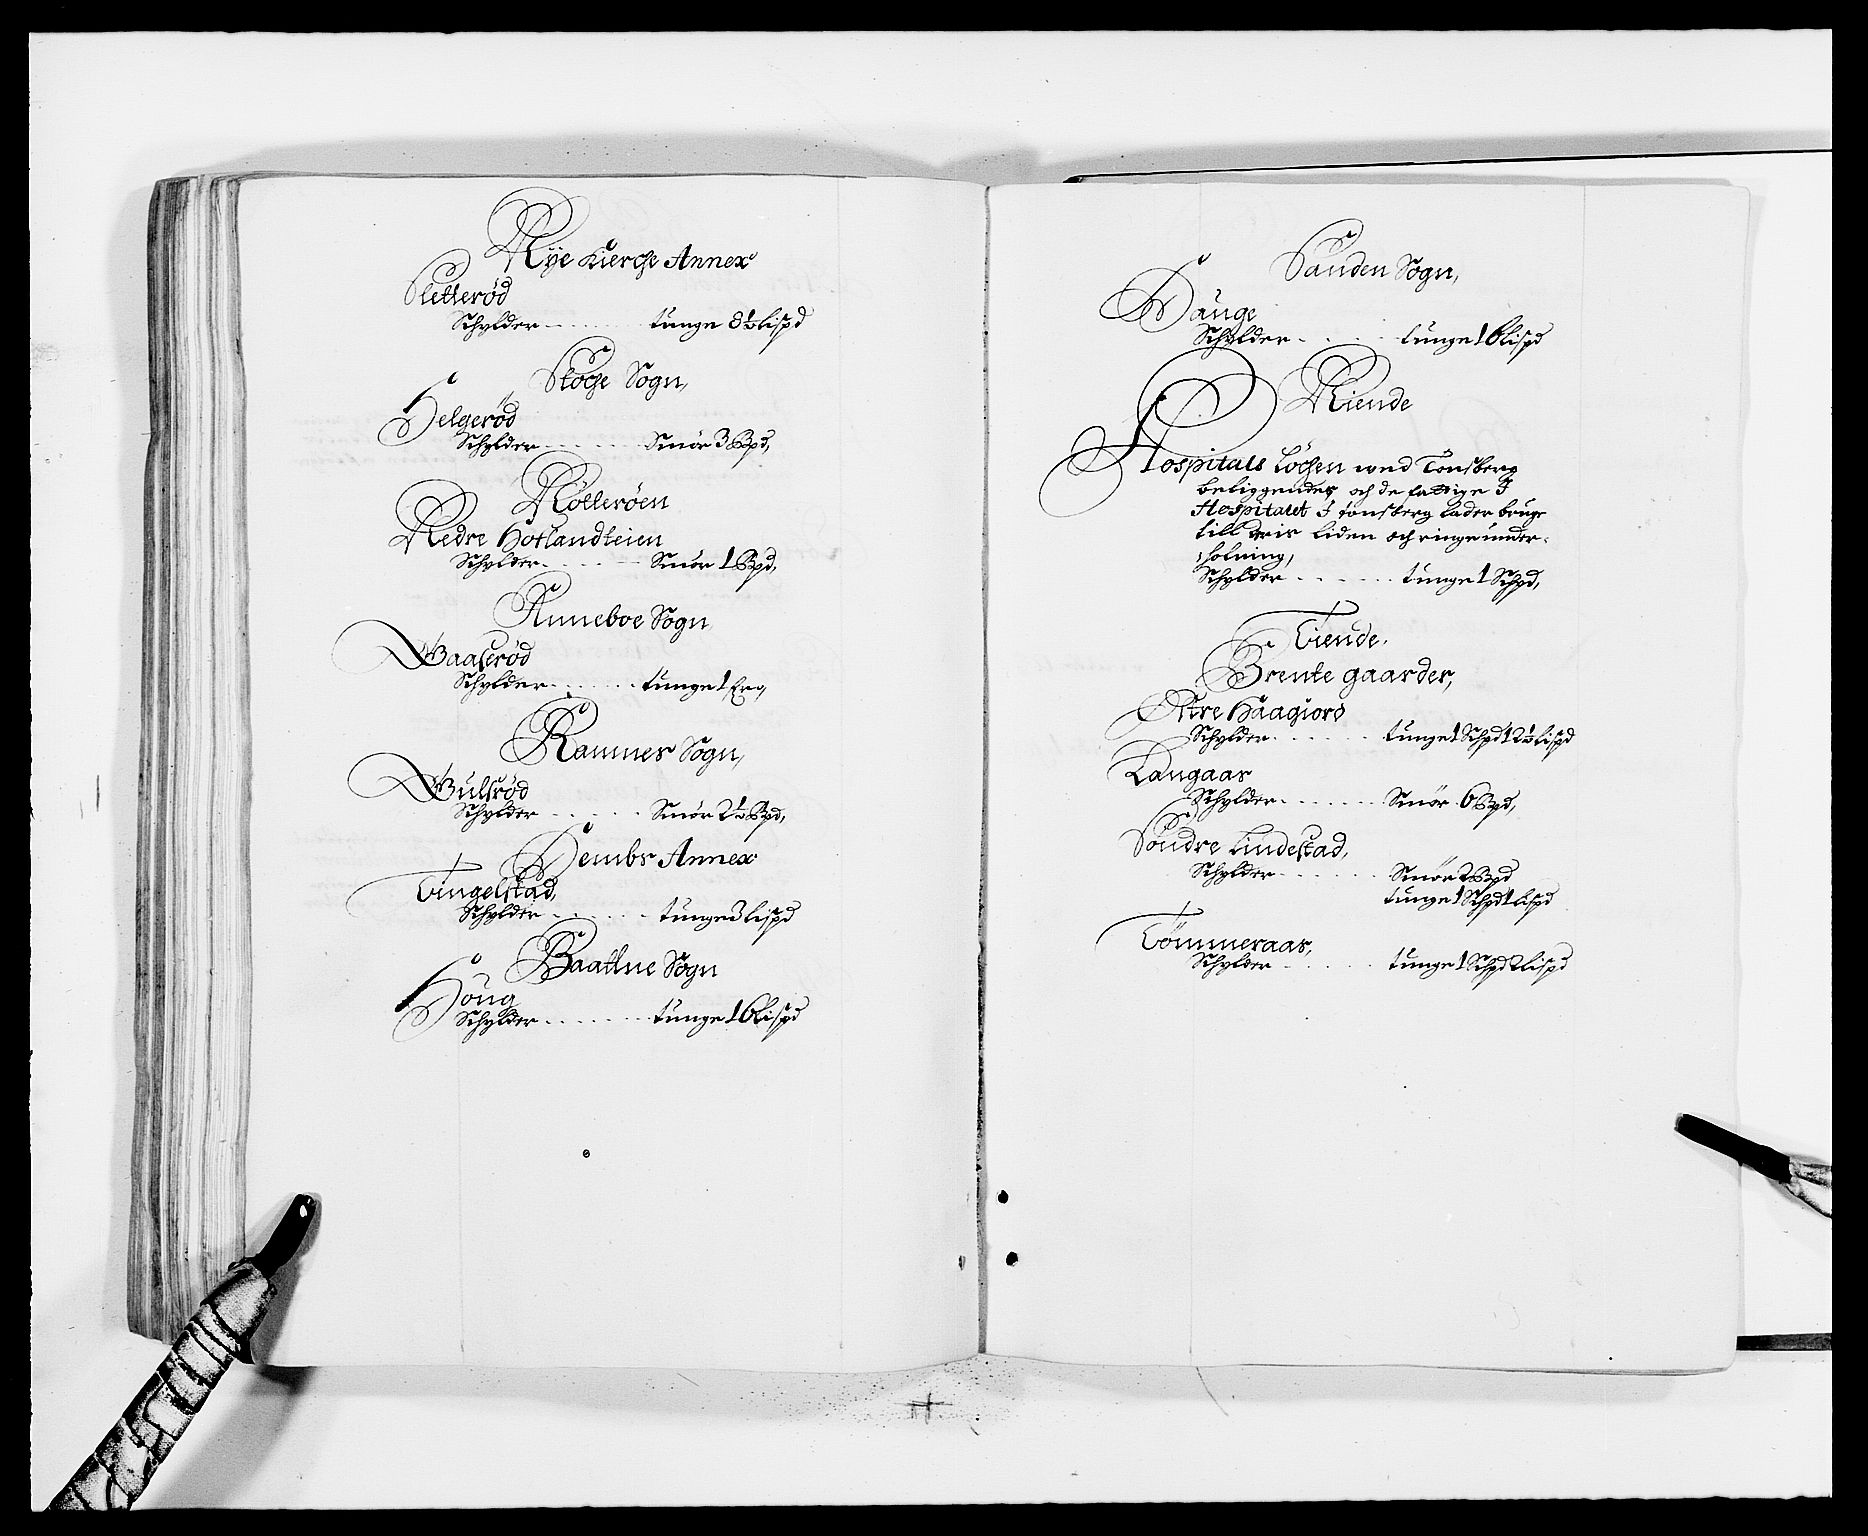 Nye Kierche Annex
Sletterød
Schylder - - - - - - tunge 8½ lispd
Stoche Sogn,
Helgerød
Schylder - - - - - - Smör 3 Bpd,
Nötterøen
Nedre Hotlandteien
Schylder - - - - - - Smör 1 Bpd,
Anneboe Sogn
Baaserød
Schylder - - - - - - tunge 1 Ferg,
Ramnes Sogn,
Bulsrød
Schylder - - - - - - Smör 2½ Bpd,
Hembs Annex
Tingelstad,
Schylder - - - - - - tunge 3 lispd
Baattne Sogn
Houg
Schylder - - - - - - tunge 16 lispd
Sanden Sogn,
Hauge
Schylder - - - - - tunge 16 lispd
Niende
Hospitals Löchen wed Tonsberg
beliggendes, och de fattige I
Hospitalet I tonsberg lader bruge
till deris liden och ringe under-
holning,
Schylder - - - - - - tunge 1 Schpd,
Tiende.
Brente gaarder,
Östre Haagiord
Schylder - - - - - - tunge 1 Schpd 12½ lispd
Langaas
Schylder - - - - - - Smör 6 Bpd,
Söndre Lindestad,
Schylder - - - - - - Smör 2 Bpd
tunge 1 Schpd 1 lispd
Tömmeraas,
Schylder - - - - - - tunge 1 Schpd 2 lispd